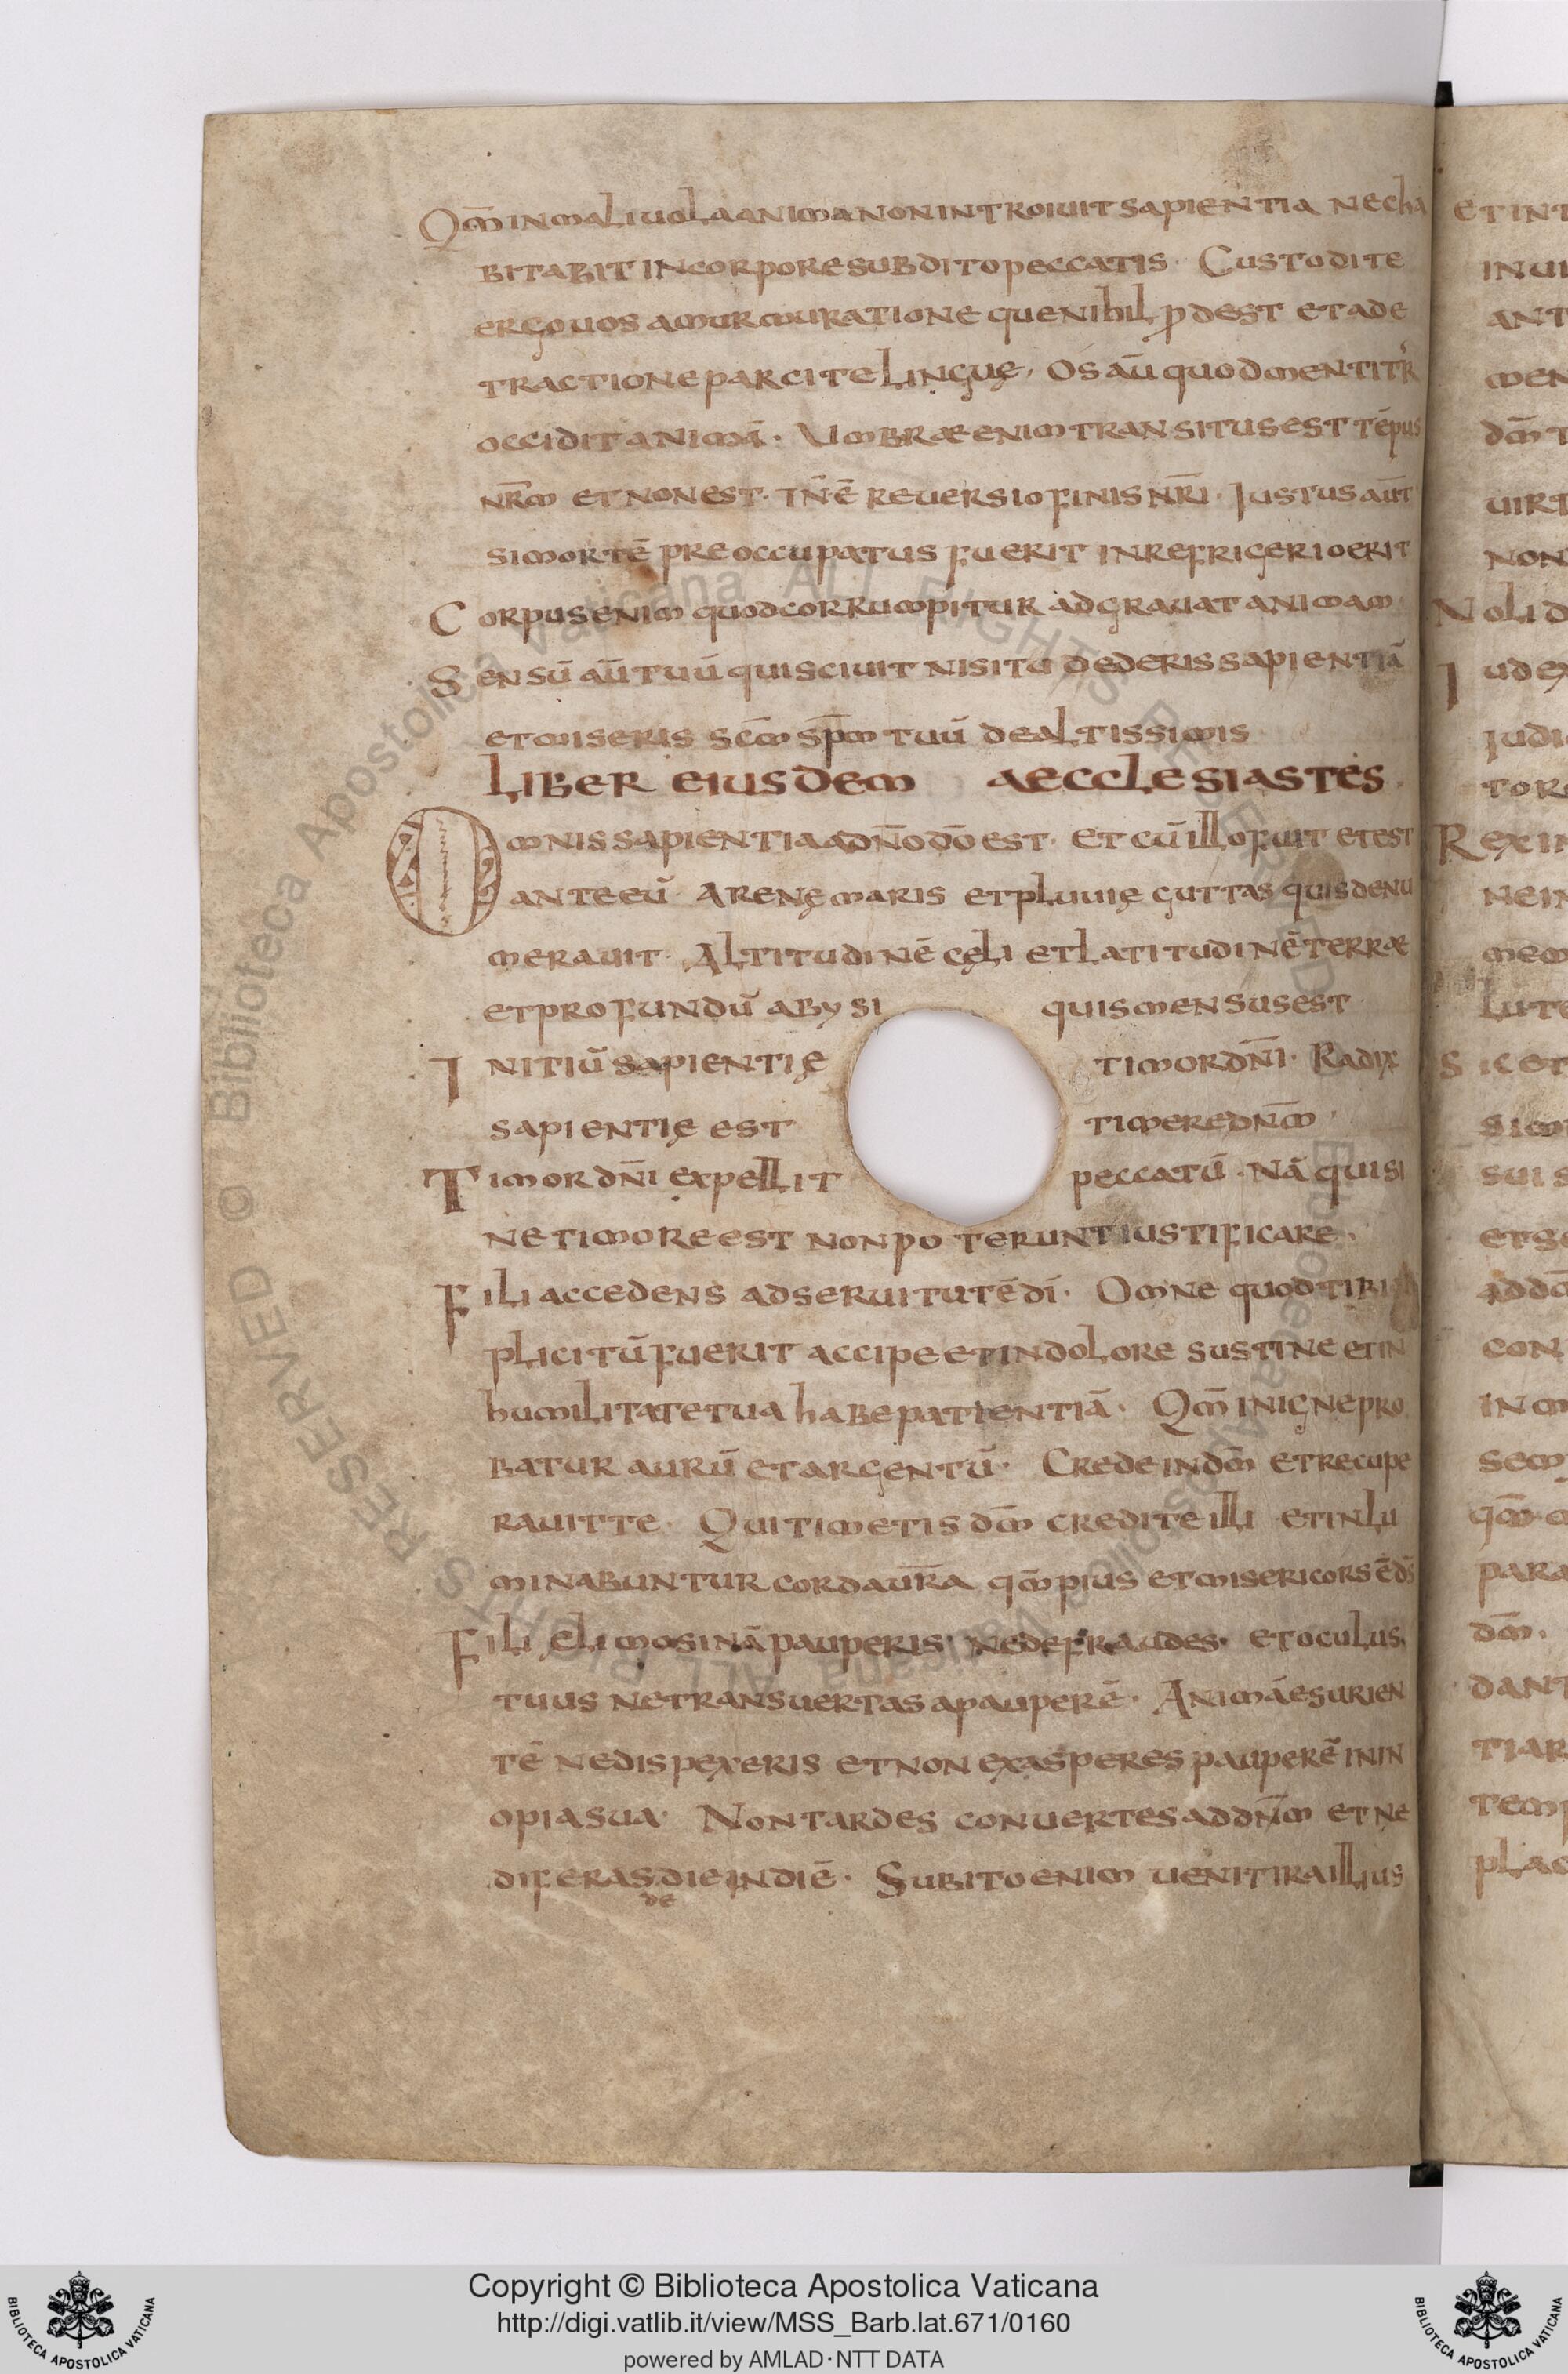 Qm̄ in maliuola anima non introiuit sapientia nec ha
bitabit in corpore subdito peccatis · Custodite
ergo uos a murmuratione que nihil ꝓdest et a de
tractione parcite linguę · Os aū quod mentitr̓
occidit animā · Umbræ enim transitus est tēpus
nr̄m et non est · īn̄ ē reuersio finis nr̄i · Iustus aūt
si mortē preoccupatus fuerit in refrigerio erit
Corpus enim quod corrumpitur adgrauat animam ·
Sensū aūt tuū quis sciuit nisi tu dederis sapientiā
et miseris sc̄m sp̄m tuū de altissimis
LIBER EIUSDEM AECCLESIASTES ·
Omnis sapientia a dn̄o dō est · et cū illo fuit et est
ante eū · Arenę maris et pluuię guttas quis denu
merauit · Altitudinē cęli et latitudinē terræ
et profundū abysi quis mensus est
Initiū sapientię timor dn̄i · Radix
sapientię est timere dn̄m ·
Timor dn̄i expellit peccatū · Nā qui si
ne timore est non poterunt iustificare ·
Fili accedens ad seruitutē dī · Omne quod tibi
plicitū fuerit accipe et in dolore sustine et in
humilitate tua habe patientiā · Qm̄ in igne pro
batur aurū et argentū · Crede in dm̄ et recupe
rauit te · Qui timetis dm̄ credite illi et inlu
minabuntur corda ur̄a qm̄ pius et misericors ē ds̄
Fili ęlimosinā pauperis · ne defraudes · et oculus
tuus ne transuertas a pauperē · Animā esurien
tē ne dispexeris et non exasperes pauperē in in
opia sua · Non tardes conuertes ad dn̄m et ne
diferas die in diē · Subito enim uenit ira illius
de
Copyright © Biblioteca Apostolica Vaticana
http://digi.vatlib.it/view/MSS_Barb.lat.671/0160
powered by AMLAD·NTT DATA